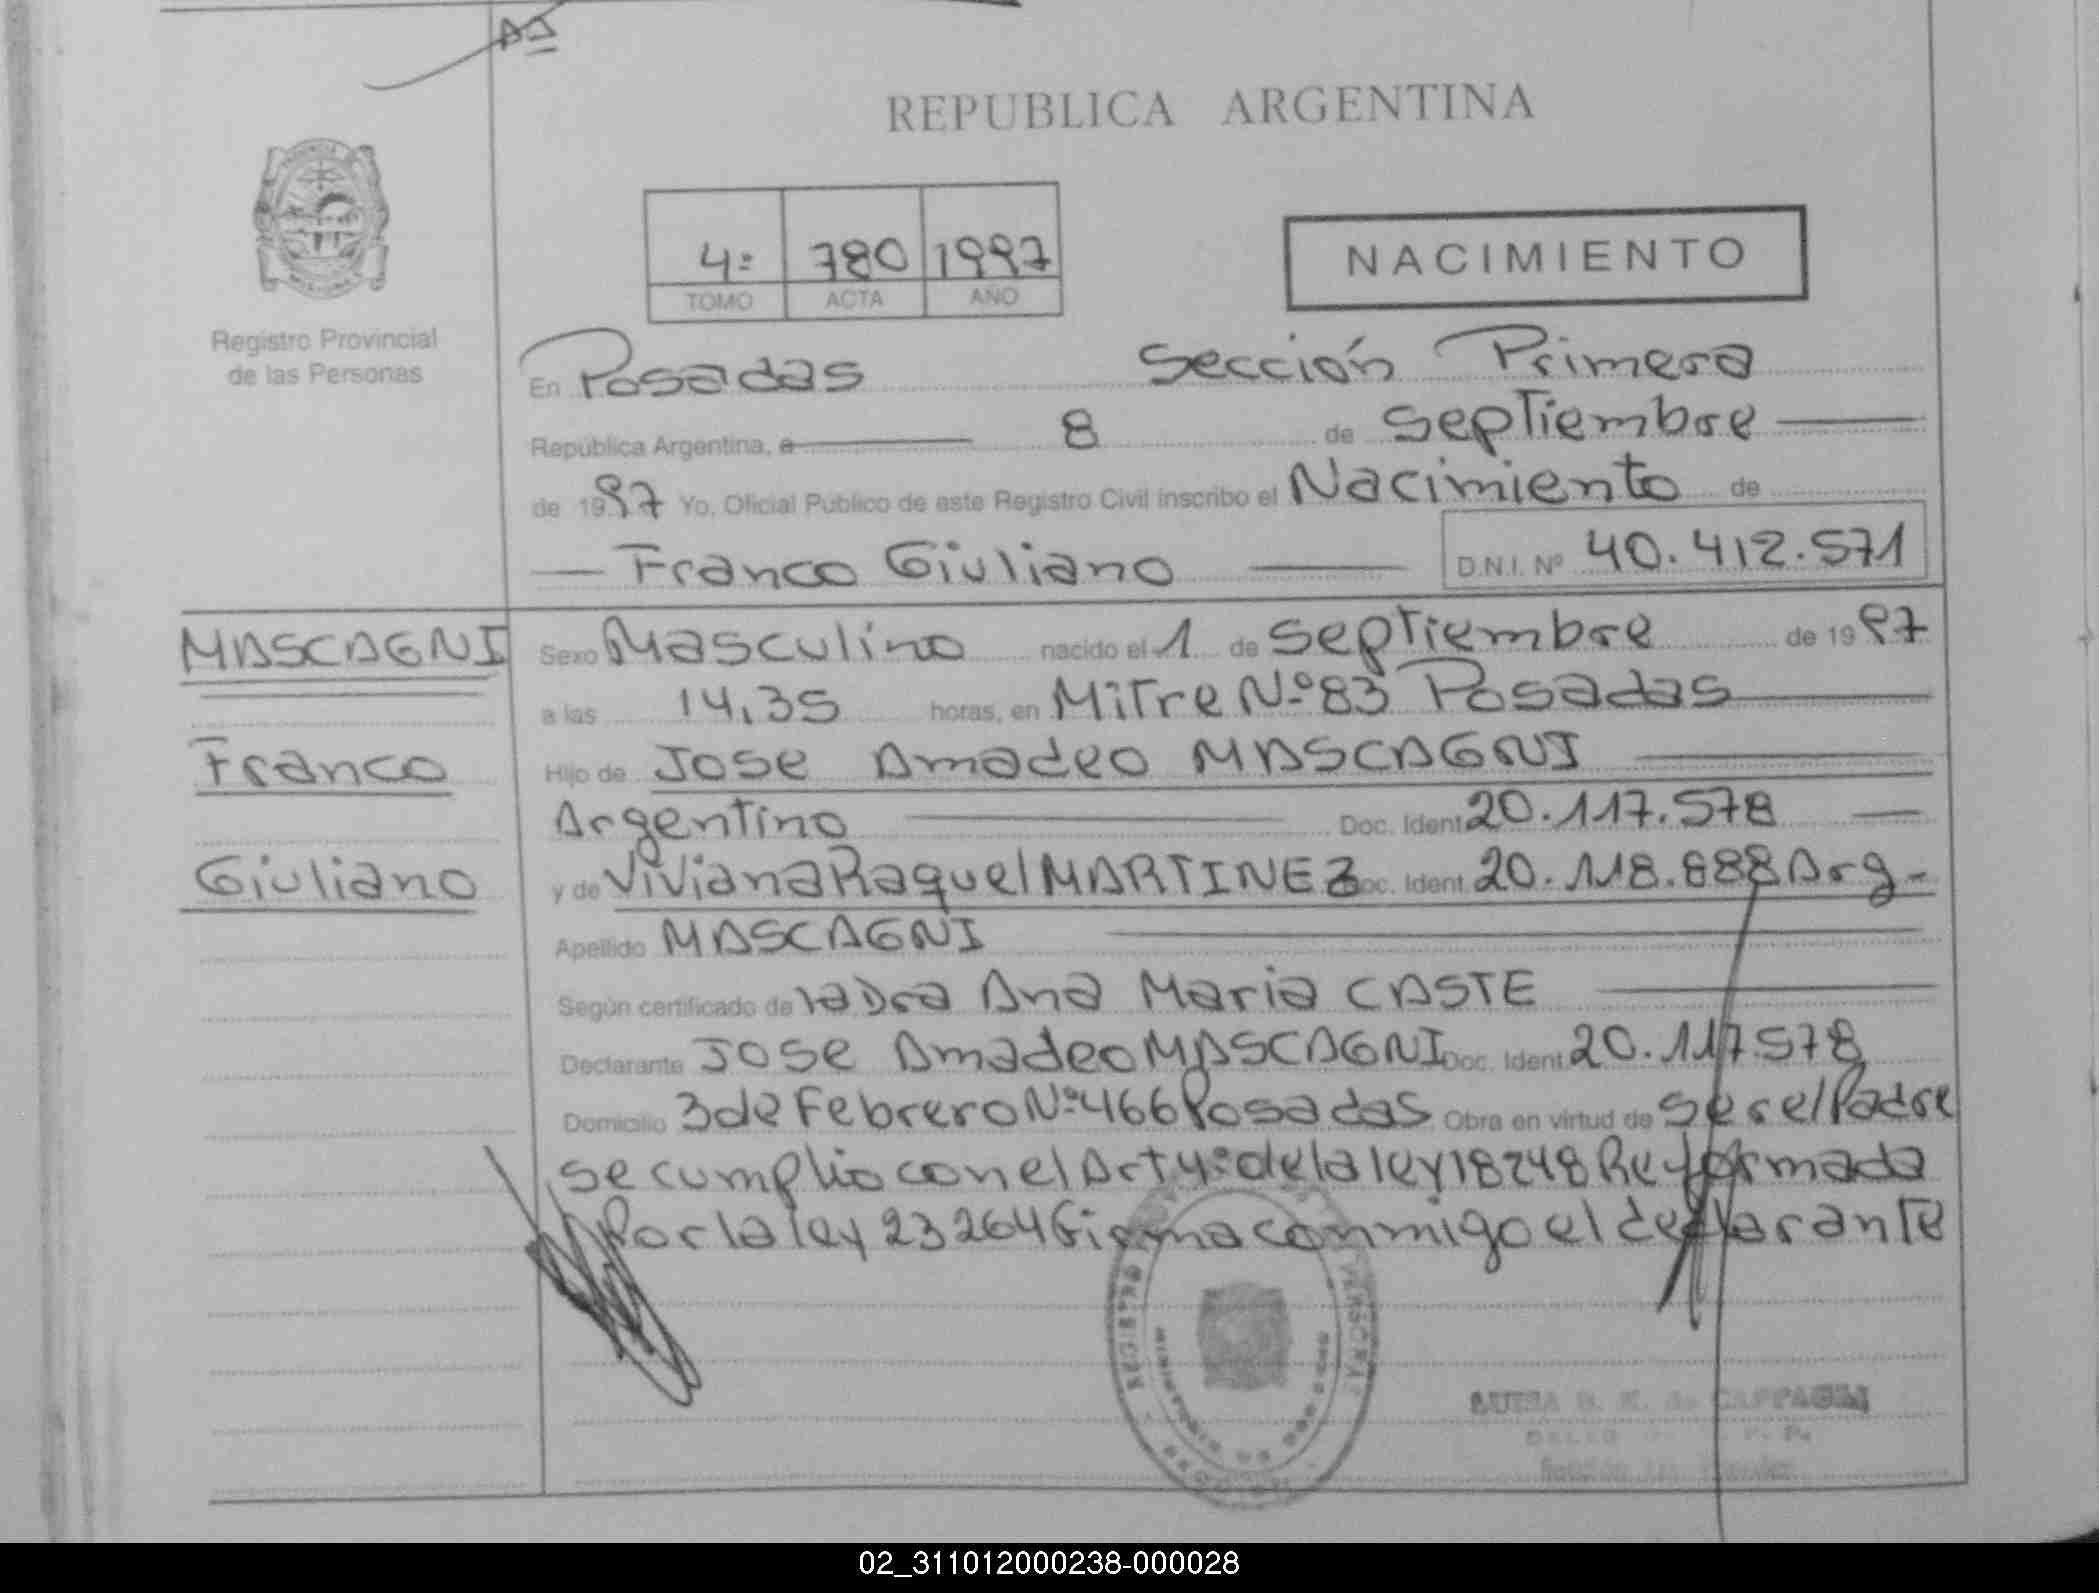 REPUBLICA ARGENTINA
4º 780 1997
TOMO ACTA AÑO
NACIMIENTO
Registro Provincial
de las Personas
En Posadas Sección Primera
República Argentina, a 8 de Septiembre
de 1997 Yo, Oficial Público de este Registro Civil inscribo el Nacimiento de
Franco Giuliano D.N.I. Nº 40.412.571
MASCAGNI
Franco
Giuliano
Sexo Masculino nacido el 1 de Septiembre de 1997
a las 14,35 horas, en Mitre Nº 83 Posadas
Hijo de Jose Amadeo MASCAGNI
Argentino Doc. Ident. 20.117.578
y de Viviana Raquel MARTINEZ Doc. Ident. 20.118.888 Arg-
Apellido MASCAGNI
Según certificado de la Dra Ana Maria CASTE
Declarante Jose Amadeo MASCAGNI Doc. Ident. 20.117.578
Domicilio 3 de Febrero Nº 466 Posadas Obra en virtud de ser el Padre
se cumplio con el Art 4º de la ley 18248 Reformada
Por la ley 23264 Firma conmigo el declarante
02_311012000238-000028